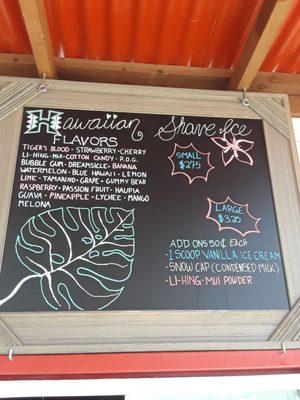 Hawaiian Shave Ice
FLAVORS
TIGER'S BLOOD · STRAWBERRY · CHERRY
LI-HING-MUI · COTTON CANDY · P.O.G.
BUBBLE GUM · DREAMSICLE · BANANA
WATERMELON · BLUE HAWAII · LEMON
LIME · TAMARIND · GRAPE · GUMMY BEAR
RASPBERRY · PASSION FRUIT · HAUPIA
GUAVA · PINEAPPLE · LYCHEE · MANGO
MELONA
SMALL
$2.75
LARGE
$3.25
ADD ONS 50¢ EACH
-1 SCOOP VANILLA ICE CREAM
-SNOW CAP (CONDENSED MILK)
-LI-HING-MUI POWDER